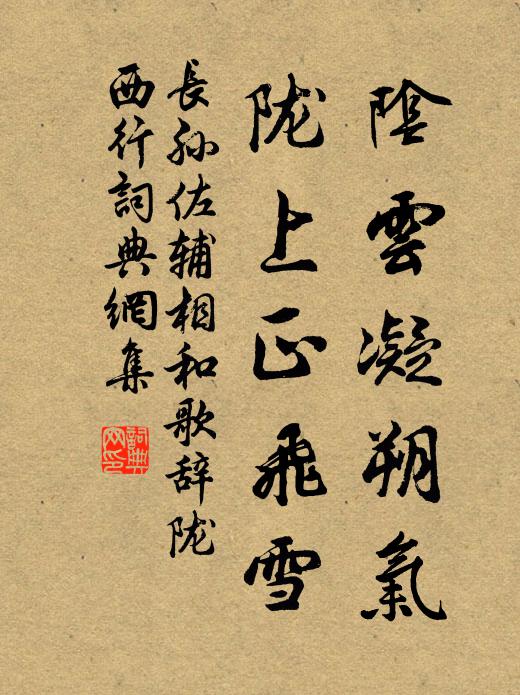 陰雲凝朔氣
陇上正飛雪
長孙佐辅相和歌辞陇
西行詞典網集
詞典
网印